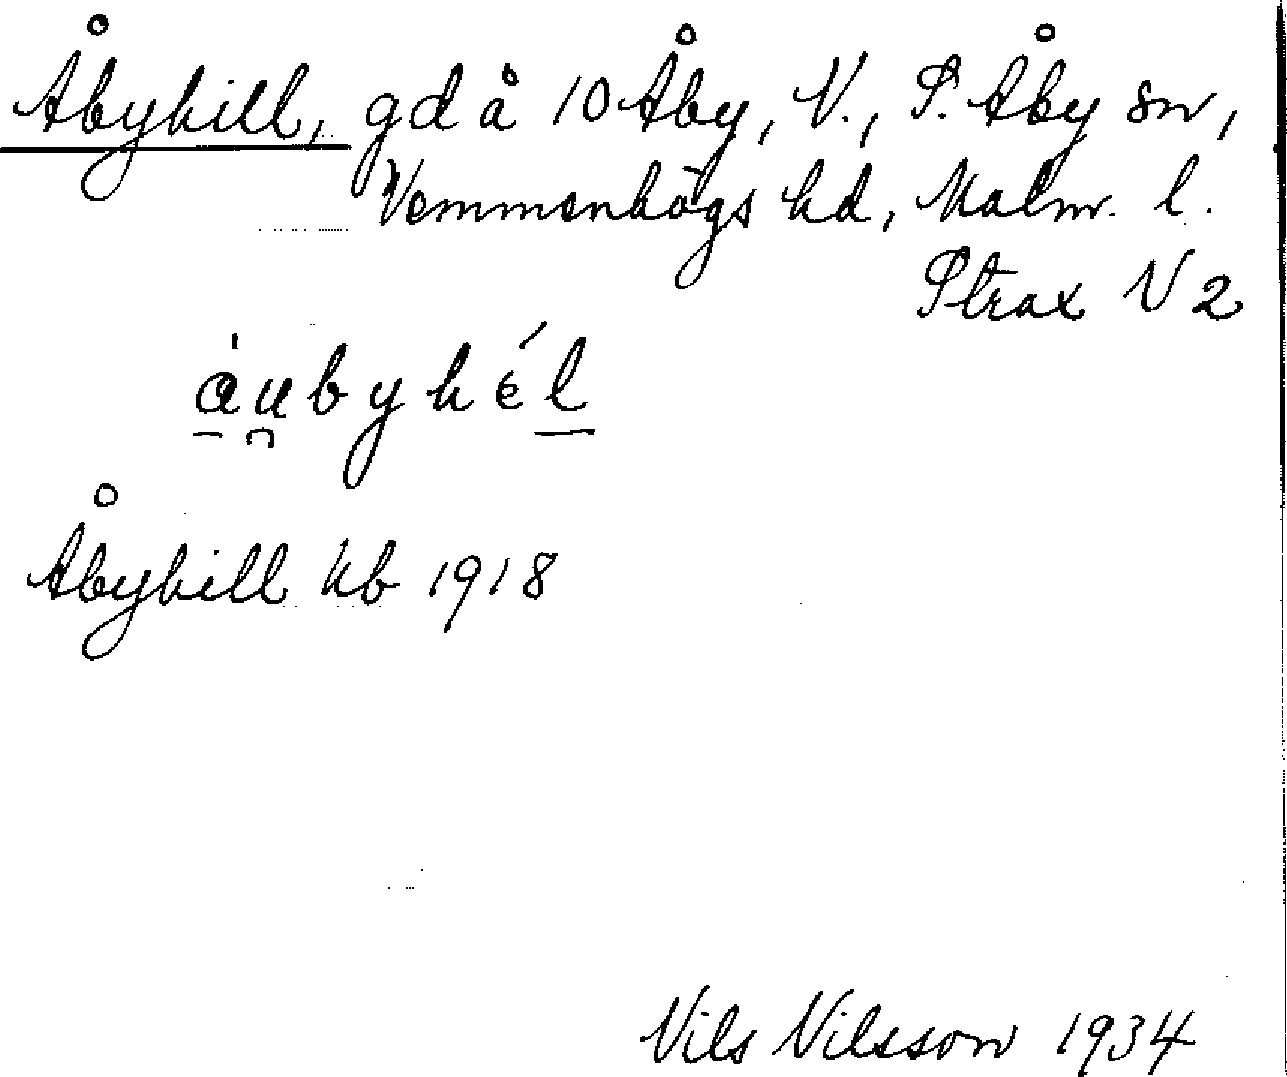 Åbyhill, gd å 10 Åby, N., S. Åby sn,
Vemmenhögs hd, Malm. l.
Strax N 2
áu̯byhél
Åbyhill kb 1918
Nils Nilsson 1934